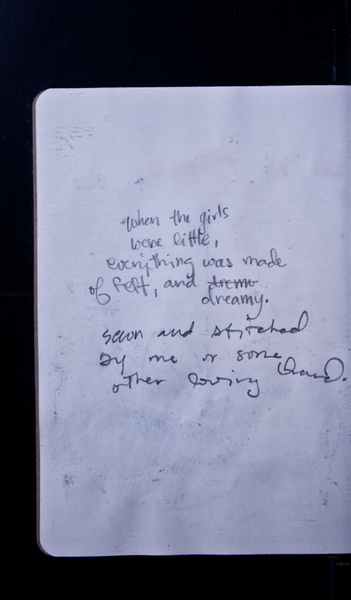 "When the girls
were little,
everything was made
of felt, and dreamy.
sewn and stitched
by me or some
other loving hand.